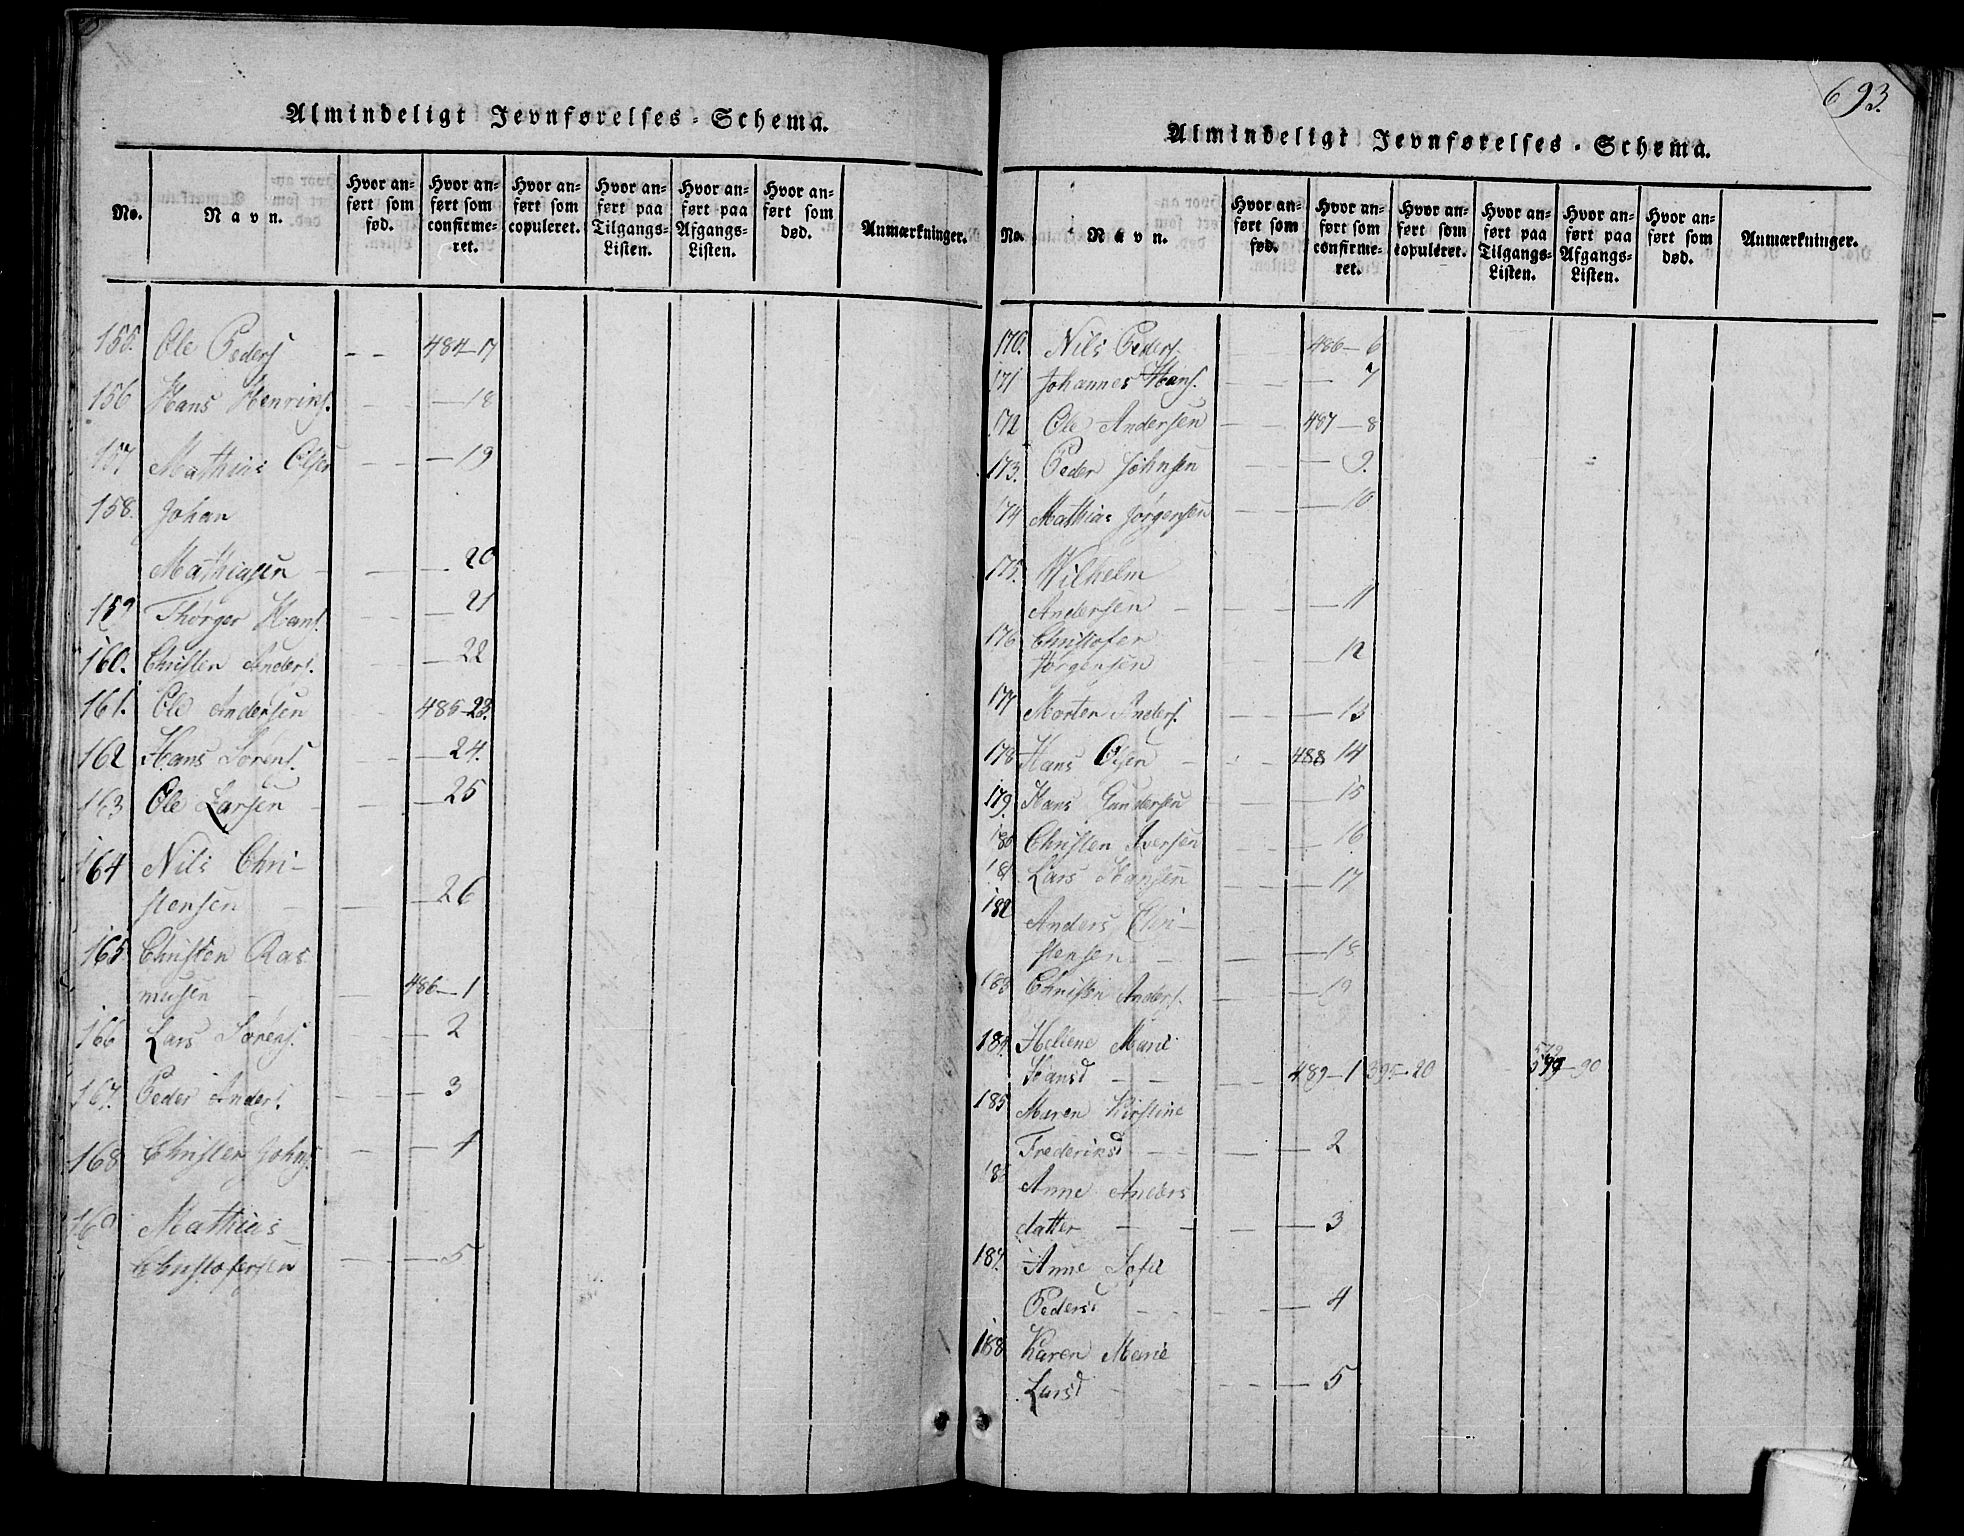 Almindeligt Jevnførelses-Schema.
No. Navn. Hvor anført som fød. Hvor anført som confirmeret. Hvor anført som copuleret. Hvor anført paa Tilgangs-Listen. Hvor anført paa Afgangs-Listen. Hvor anført som død. Anmærkninger.
155. Ole Peders - - 484-17
156 Hans Henriks. - - - 18
157 Mathias Olsen - - - 19
158. Johan
Mathiasen - - - 20
159 Thørger Hans. - - - 21
160. Christen Anders. - - - 22
161. Ole Andersen - - 485-23.
162 Hans Sørens. - - - 24.
163 Ole Larsen - - - 25
164 Nils Chri-
stensen - - - 26
165 Christen Ras
musen - - 486-1
166 Lars Sørens. - - - 2
167. Peder Anders. - - - 3
168 Christen Johns. - - - 4
169 Mathias
Christofersen - - - 5
693.
Almindeligt Jevnførelses-Schema.
No. Navn. Hvor anført som fød. Hvor anført som confirmeret. Hvor anført som copuleret. Hvor anført paa Tilgangs-Listen. Hvor anført paa Afgangs-Listen. Hvor anført som død. Anmærkninger.
170. Nils Peders. - - 486-6
171 Johannes Hans. - - - 7
172 Ole Andersen - - 487-8
173. Peder Johnsen - - - 9.
174 Mathias Jørgensen - - - 10
175. Wilhelm
Andersen - - - 11
176 Christofer
Jørgensen - - - 12
177 Morten Anders. - - - 13
178 Hans Olsen - - 488 14
179. Hans Gundersen - - - 15
180 Christen Iversen - - - 16
181 Lars Hansen - - - 17
182 Anders Chri-
stensen - - - 18
183 Christen Anders. - - - 19
184. Hellene Marie
Hansd - - 489-1 395-20 - 579-90
185 Maren Kirstine
Frederiksd - - - 2
186 Anne Anders
datter - - - 3
187. Anne Sofie
Pedersd - - - 4
188 Karen Marie
Larsd - - - 5